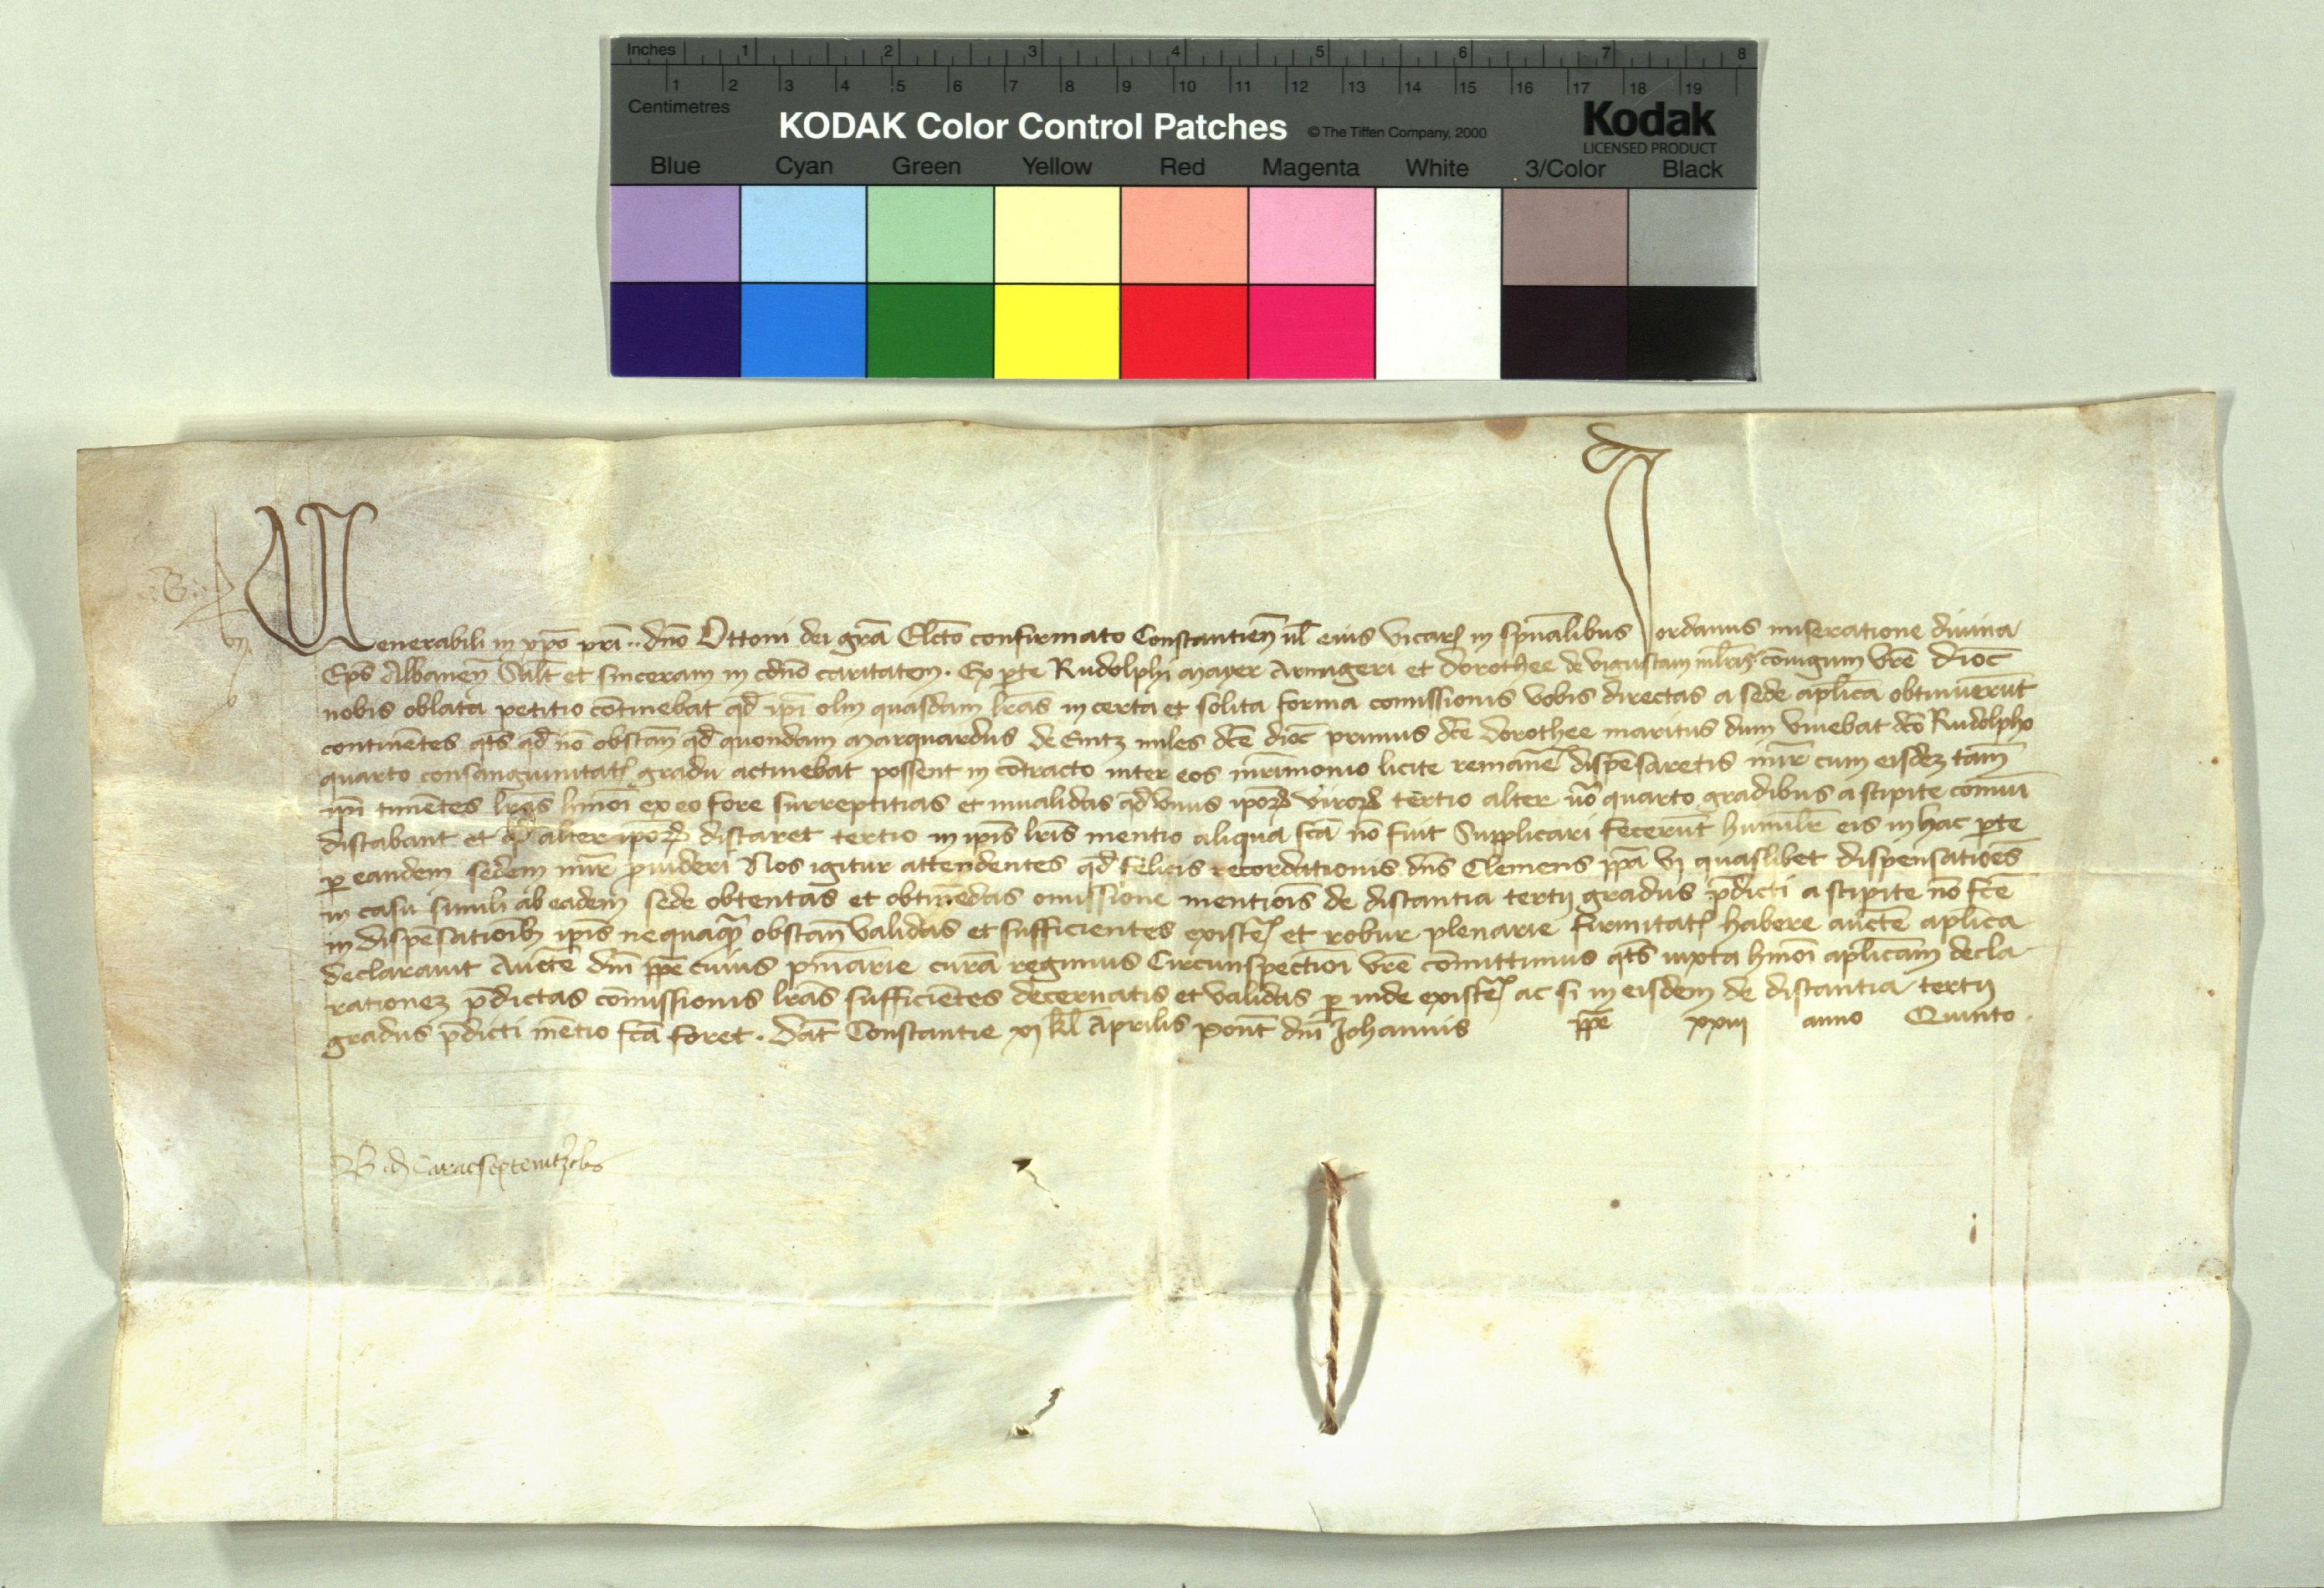 Inches 1 2 3 4 5 6 7 8
1 2 3 4 5 6 7 8 9 10 11 12 13 14 15 16 17 18 19
Centimetres
KODAK Color Control Patches © The Tiffen Company, 2000 Kodak
LICENSED PRODUCT
Blue Cyan Green Yellow Red Magenta White 3/Color Black
Venerabili in xp̄o pr̄i ·· dn̄o Ottoni dei gr̄a El̄cto confirmato Constantien̄ ul̄ eius vicar̄ in sp̄ualibus Jordanus miseratione diuina
Ep̄s Albanen̄ Sal̄t et sinceram in dn̄o caritatem. Ex p̄te Rudolphi mayer Armigeri et dorothee de coniugum vr̄e dioc̄
nobis oblata petitio cōtinebat qd̄ ip̄i olim quasdam lr̄as in certa et solita forma comissionis vobis directas a sede ap̄lica obtinuerūt
continētes qt̄s qd̄ nō obstan̄ qd̄ quondam marquardus de Emtz miles dc̄e dioc̄ primus dc̄e dorothee maritus dum viuebat dc̄o Rudolpho
quarto consanguinitat̄ gradu actinebat possent in cōtracto inter eos mr̄imonio licite remaner̄ dispēsaretis mir̄ cum eisdez tam̄
ip̄i timētes lr̄as hmōi ex eo fore surreptitias et inualidas qd̄ vnus ip̄orꝝ virorꝝ tertio alter ūo quarto gradibus a stipite comūi
distabant et qd̄ alter ip̄orꝝ distaret tertio in ip̄is lr̄is mentio aliqua fc̄a nō fuit Supplicari fecerūt humilr̄ eis in hac p̄te
ꝑ eandem sedem mir̄ ꝓuideri Nos igitur attendentes qd̄ felicis recordationis dn̄s Clemens pp̄a vj quaslibet dispensatiōes
in casu simili ab eadem sede obtentas et obtinēdas omissione mentiōis de distantia tertij gradus p̄dicti a stipite nō fc̄e
in dispēsatioīb; ip̄is nequaq̄ obstan̄ validas et sufficientes existe᷑ et robur plenarie firmitat̄ habere auct̄e ap̄lica
declarauit Auct̄e dn̄i pp̄e cuius pn̄iarie curā regimus Circunspectiōi vr̄e cōmittimus qt̄s iuxta hmōi ap̄licam decla-
rationez p̄dictas cōmissionis lr̄as sufficiētes decernatis et validas ꝑ inde existe᷑ ac si in eisdem de distantia tertij
gradus p̄dicti mētio fc̄a foret. Dat̄ Constantie xj kl̄ Aprilis pont̄ dn̄i Johannis pp̄e xxiij anno Quinto.